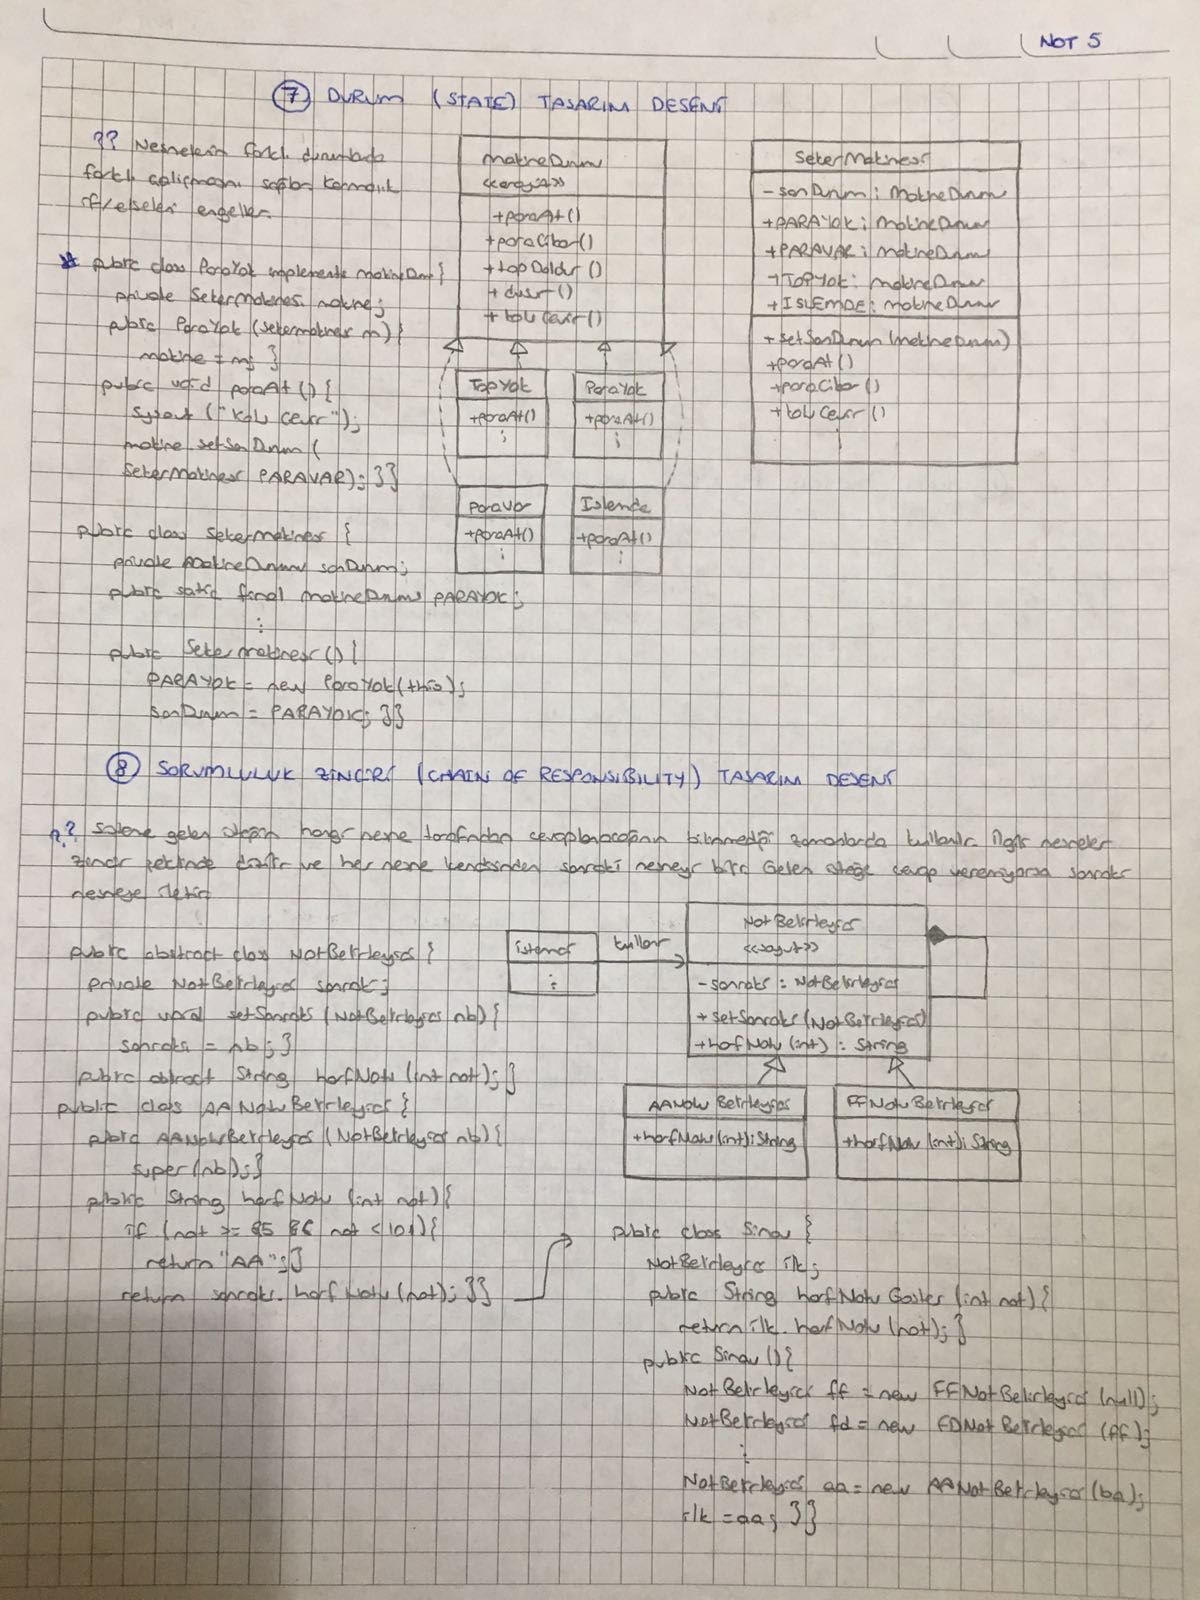 NOT 5
7 DURUM (STATE) TASARIM DESENİ
?? Nesnelerin farklı durumlarda
farklı çalışmasını sağlar. Karmaşık
if/elseleri engeller.
* public class ParaYok implements MakineDurumu{
private SekerMakinesi makine;
public ParaYok (SekerMakinesi m){
makine = m; }
public void paraAt () {
sysout ("Kolu Cevir");
makine.setSonDurum (
SekerMakinesi.PARAVAR); }}
public class SekerMakinesi {
private MakineDurumu sonDurum;
public static final MakineDurumu PARAYOK;
:
public SekerMakinesi () {
PARAYOK = new ParaYok(this);
sonDurum = PARAYOK; }}
MakineDurumu
<<arayüz>>
+paraAt()
+paraCikar()
+topDoldur()
+dusur()
+koluCevir()
TopYok
+paraAt()
:
ParaYok
+paraAt()
:
ParaVar
+paraAt()
:
Islemde
+paraAt()
:
SekerMakinesi
- sonDurum : MakineDurumu
+PARAYOK : MakineDurumu
+PARAVAR : MakineDurumu
+TOPYOK : MakineDurumu
+ISLEMDE : MakineDurumu
+setSonDurum(MakineDurumu)
+paraAt()
+paraCikar()
+koluCevir()
:
8 SORUMLULUK ZİNCİRİ (CHAIN OF RESPONSIBILITY) TASARIM DESENİ
?? Sisteme gelen isteğin hangi nesne tarafından cevaplanacağının bilinmediği zamanlarda kullanılır. İlgili nesneler
zincir şeklinde dizilir ve her nesne kendisinden sonraki nesneyi bilir. Gelen isteğe cevap veremiyorsa sonraki
nesneye iletir.
public abstract class NotBelirleyici {
private NotBelirleyici sonraki;
public void setSonraki (NotBelirleyici nb){
sonraki = nb; }
public abstract String harfNotu (int not); }
public class AANotuBelirleyici {
public AANotuBelirleyici (NotBelirleyici nb){
super(nb); }
public String harfNotu (int not){
if (not >= 85 && not < 101){
return "AA"; }
return sonraki.harfNotu (not); }}
istemci
:
kullanır
NotBelirleyici
<<soyut>>
- sonraki : NotBelirleyici
+ setSonraki (NotBelirleyici)
+harfNotu (int) : String
AANotuBelirleyici
+harfNotu (int) : String
FFNotuBelirleyici
+harfNotu (int) : String
public class Sinav {
NotBelirleyici ilk;
public String harfNotuGoster (int not){
return ilk.harfNotu (not); }
public Sinav () {
NotBelirleyici ff = new FFNotBelirleyici (null);
NotBelirleyici fd = new FDNotBelirleyici (ff);
:
NotBelirleyici aa = new AANotBelirleyici (ba);
ilk = aa; }}